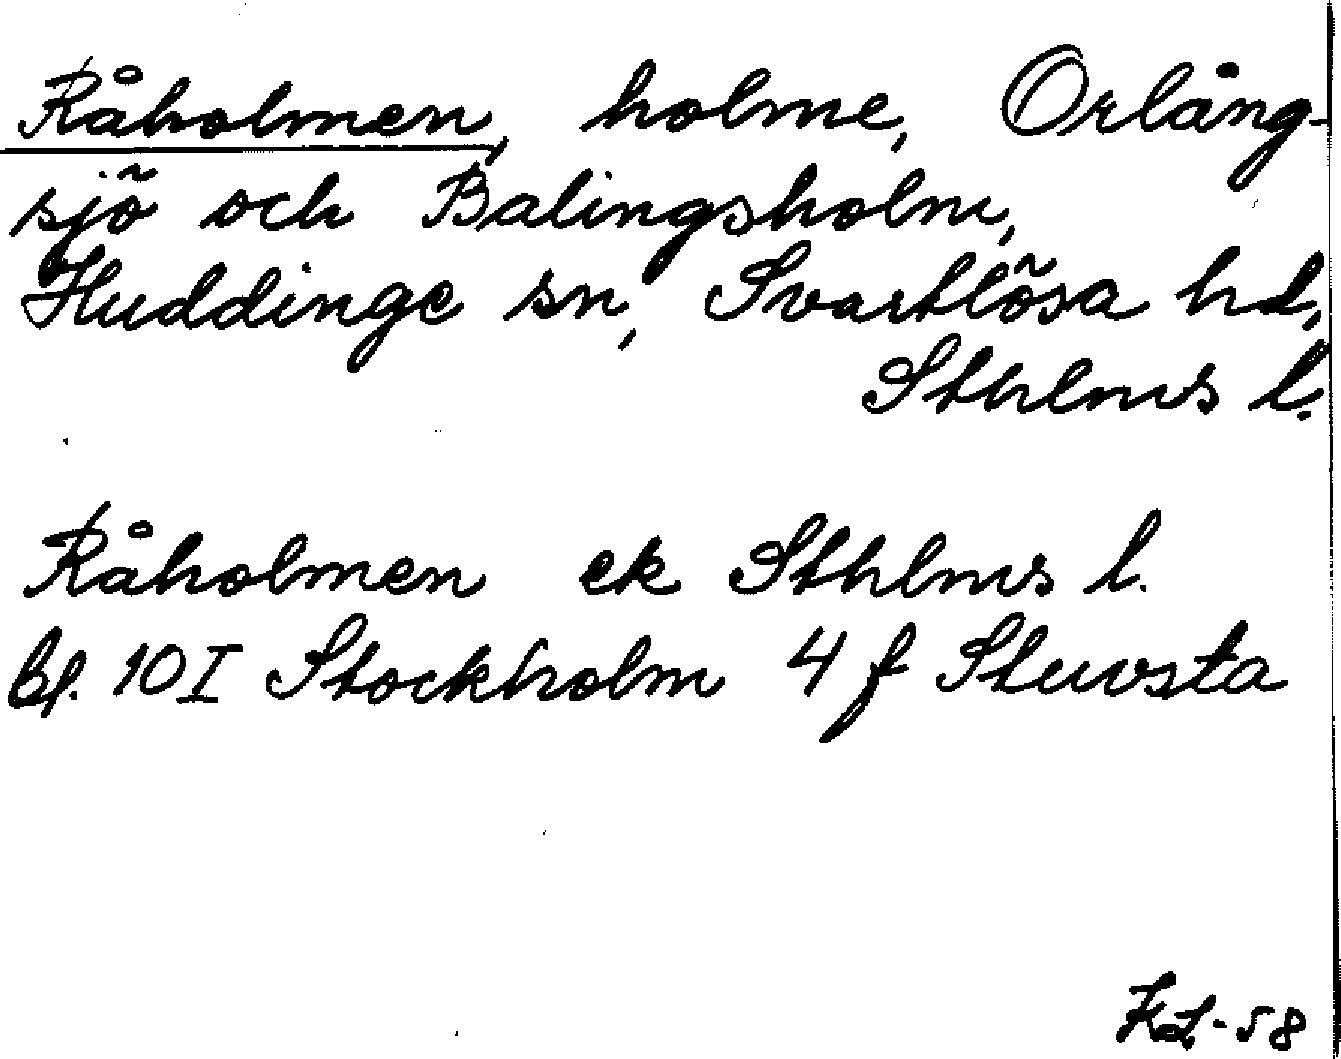 Råholmen, holme, Orlång-
sjö och Balingsholm,
Huddinge sn, Svartlösa hd,
Sthlms l.
Råholmen ek Sthlms l.
bl. 10 I Stockholm 4 f Stuvsta
KL-58